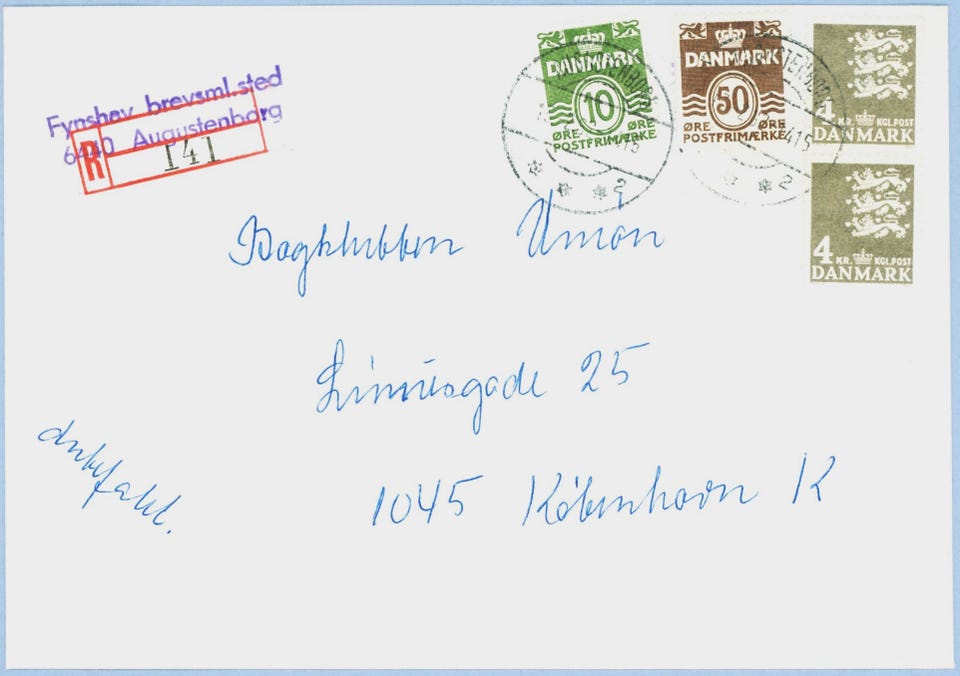 Fynshav brevsml.sted
6440 Augustenborg
R 141
DANMARK
10
ØRE ØRE
POSTFRIMÆRKE
DANMARK
50
ØRE ØRE
POSTFRIMÆRKE
1 KR. KGL.POST
DANMARK
4 KR. KGL.POST
DANMARK
2
2
Bogklubben Union
Linnésgade 25
anbefalet.
1045 København K